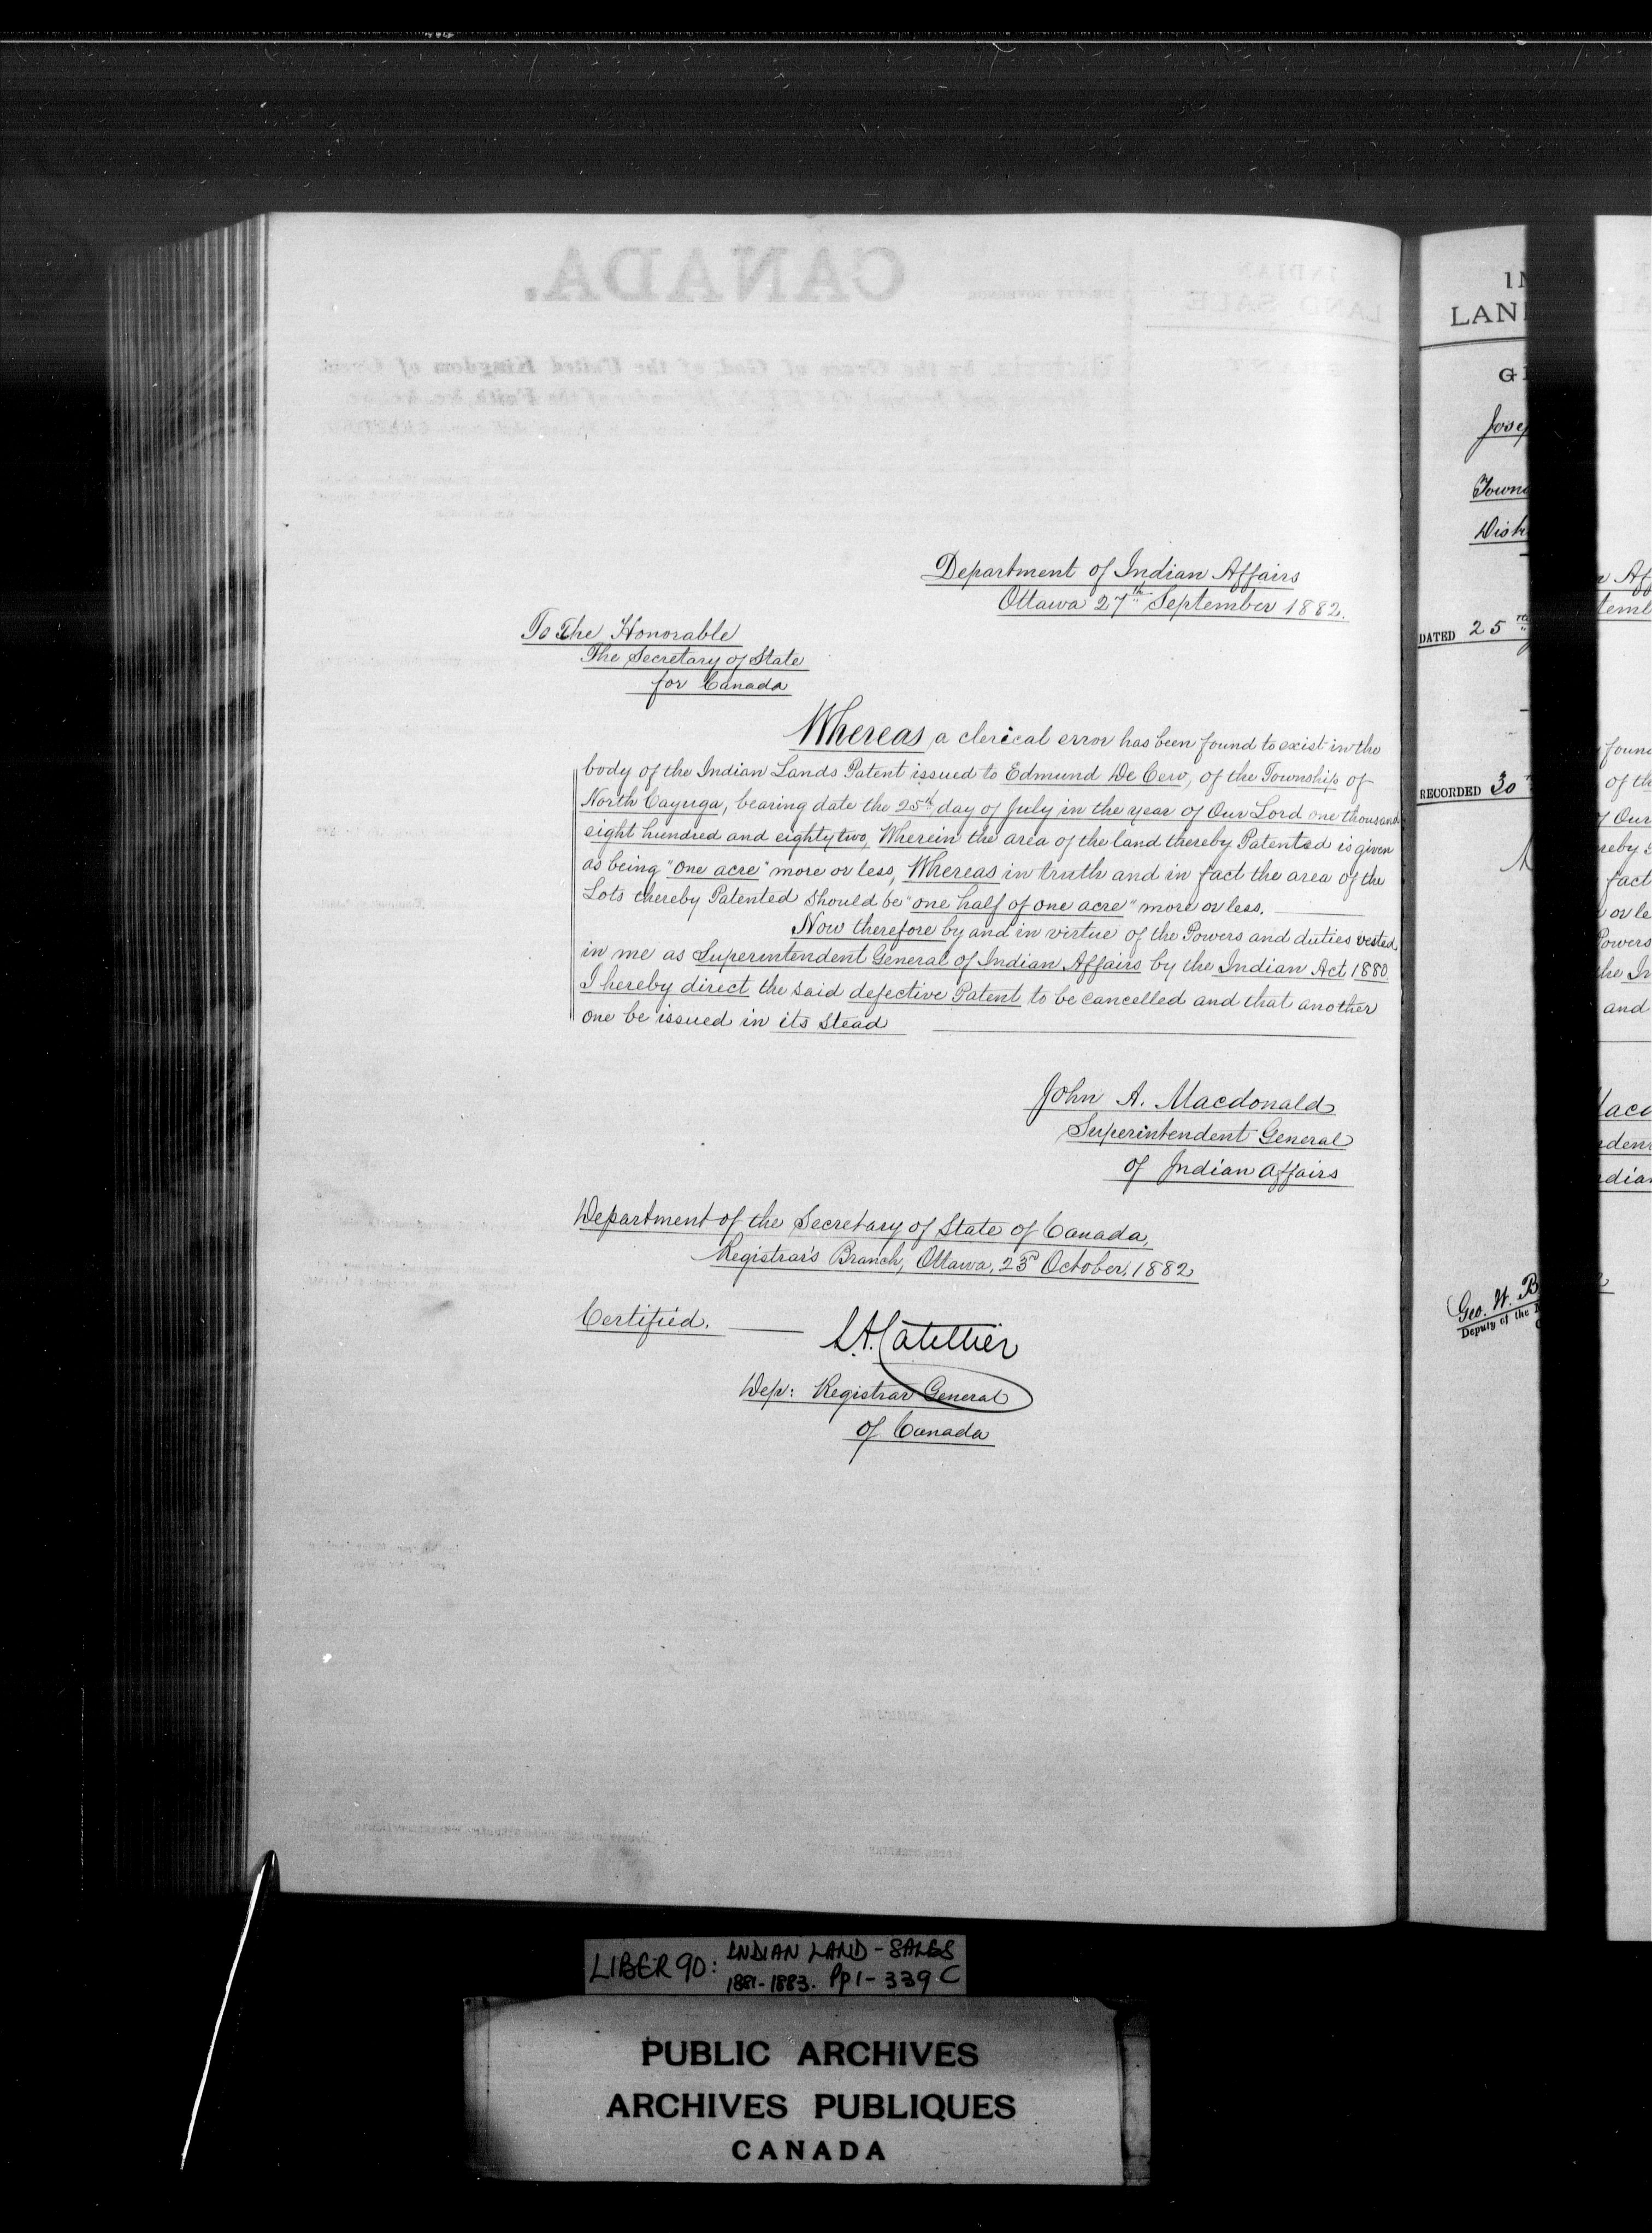 Department of Indian Affairs
Ottawa 27th September 1882.
To The Honorable
The Secretary of State
for Canada
Whereas a clerical error has been found to exist in the
body of the Indian Lands Patent issued to Edmund De Cew, of the Township of
North Cayuga, bearing date the 25th day of July in the year of Our Lord one thousand
eight hundred and eighty two, Wherein the area of the land thereby Patented is given
as being "one acre" more or less, Whereas in truth and in fact the area of the
Lots thereby Patented should be "one half of one acre" more or less.
Now therefore by and in virtue of the Powers and duties vested
in me as Superintendent General of Indian Affairs by the Indian Act 1880
I hereby direct the said defective Patent to be cancelled and that another
one be issued in its stead
John A. Macdonald
Superintendent General
of Indian Affairs
Department of the Secretary of State of Canada,
Registrar's Branch, Ottawa, 23rd October, 1882
Certified.
L.A. Catellier
Dep: Registrar General
of Canada
LAN
DATED 25
RECORDED 30
Geo. W. B
Deputy of the
LIBER 90: INDIAN LAND - SALES
1881-1883. Pp 1-339 C
PUBLIC ARCHIVES
ARCHIVES PUBLIQUES
CANADA